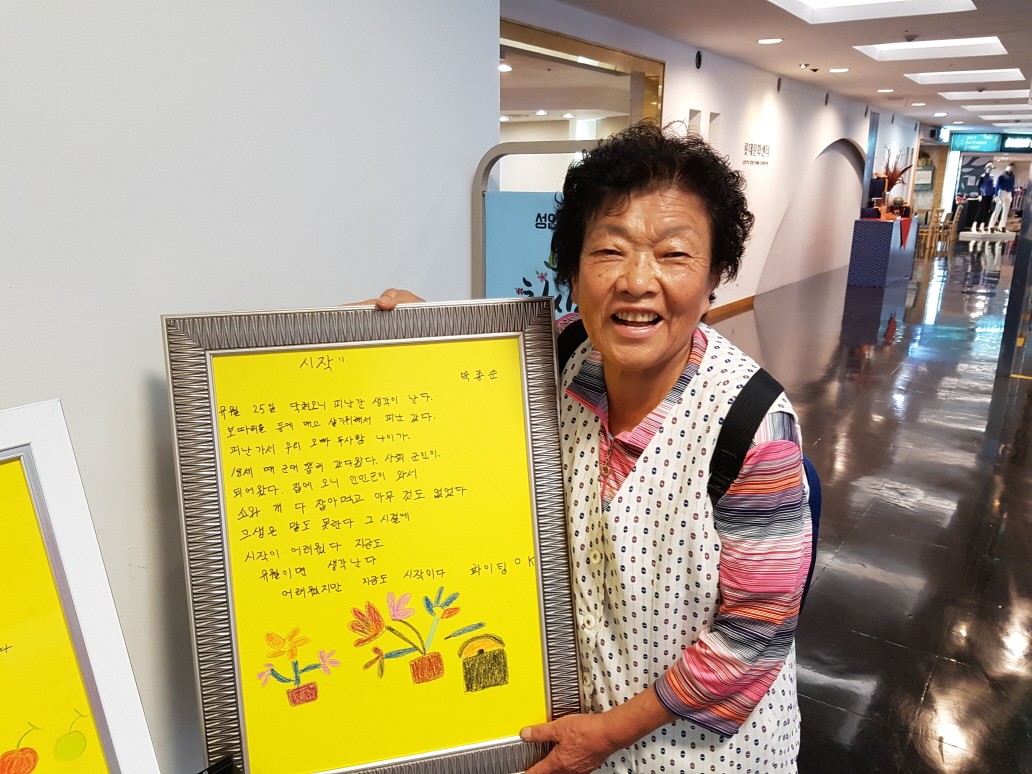 시작"
박종순
유월 25일 닥쳐오니 피난간 생각이 난다.
보따리를 등에 매고 살기위해서 피난 갔다.
피난가서 우리 오빠 두사람 나이가.
18세 때 군에 뽑혀 갔다왔다. 사회 군인이.
되어왔다. 집에 오니 인민군이 와서
소와 개 다 잡아먹고 아무 것도 없었다
고생은 말도 못한다 그 시절에
시작이 어려웠다 지금도
유월이면 생각난다
어려웠지만 지금도 시작이다 화이팅 OK
성인
롯데문화센터
LOTTE CULTURE CENTER
다